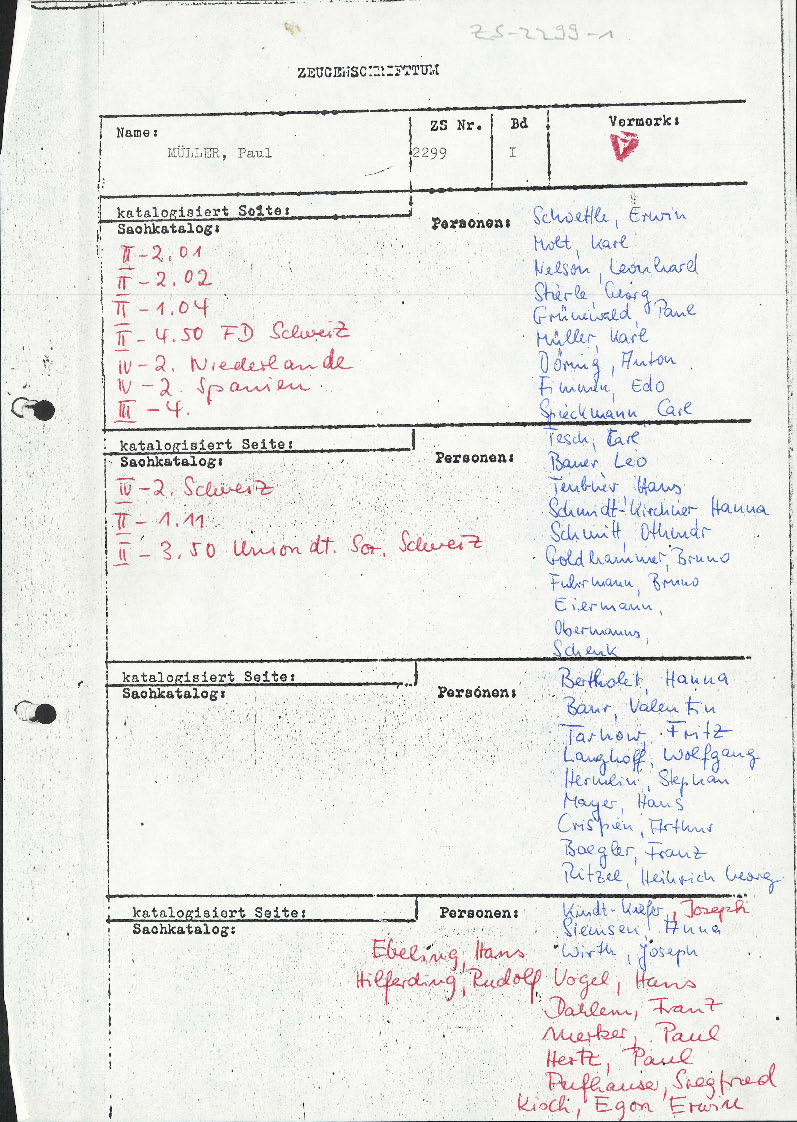 ZS-2299-1
ZEUGENSCHRIFTTUM
Name: ZS Nr. Bd Vermerk:
MÜLLER, Paul 2299 I
katalogisiert Seite:
Sachkatalog:
II-2.01
II-2.02
II-1.04
II-4.50 FD Schweiz
IV-2. Niederlande
IV-2. Spanien
III-4.
Personen:
Schoettle, Erwin
Molt, Karl
Nelson, Leonhard
Stierle, Georg
Grünewald, Paul
Müller, Karl
Döring, Anton
Fimmen, Edo
Spieckmann Carl
katalogisiert Seite:
Sachkatalog:
IV-2. Schweiz
II-1.11
II-3.50 Union dt. Soz. Schweiz
Personen:
Tesch, Carl
Bauer Leo
Teubner Hans
Schmidt-Kirchner Hanna
Schmitt, Othmar
Goldhammer, Bruno
Fuhrmann, Bruno
Eiermann,
Obermanns,
Schenk
katalogisiert Seite:
Sachkatalog:
Personen:
Bertholet, Hanna
Baur, Valentin
Tarnow, Fritz
Langhoff, Wolfgang
Hermlin, Stephan
Mayer, Hans
Crispien, Arthur
Boegler, Franz
Ritzel, Heinrich Georg
katalogisiert Seite:
Sachkatalog:
Personen:
Kindt-Kiefer, Joseph
Siemsen, Anna
Ebeling, Hans Wirth, Joseph
Hilferding, Rudolf Vogel, Hans
Dahlem, Franz
Merker, Paul
Hertz, Paul
Aufhäuser, Siegfried
Kisch, Egon Erwin